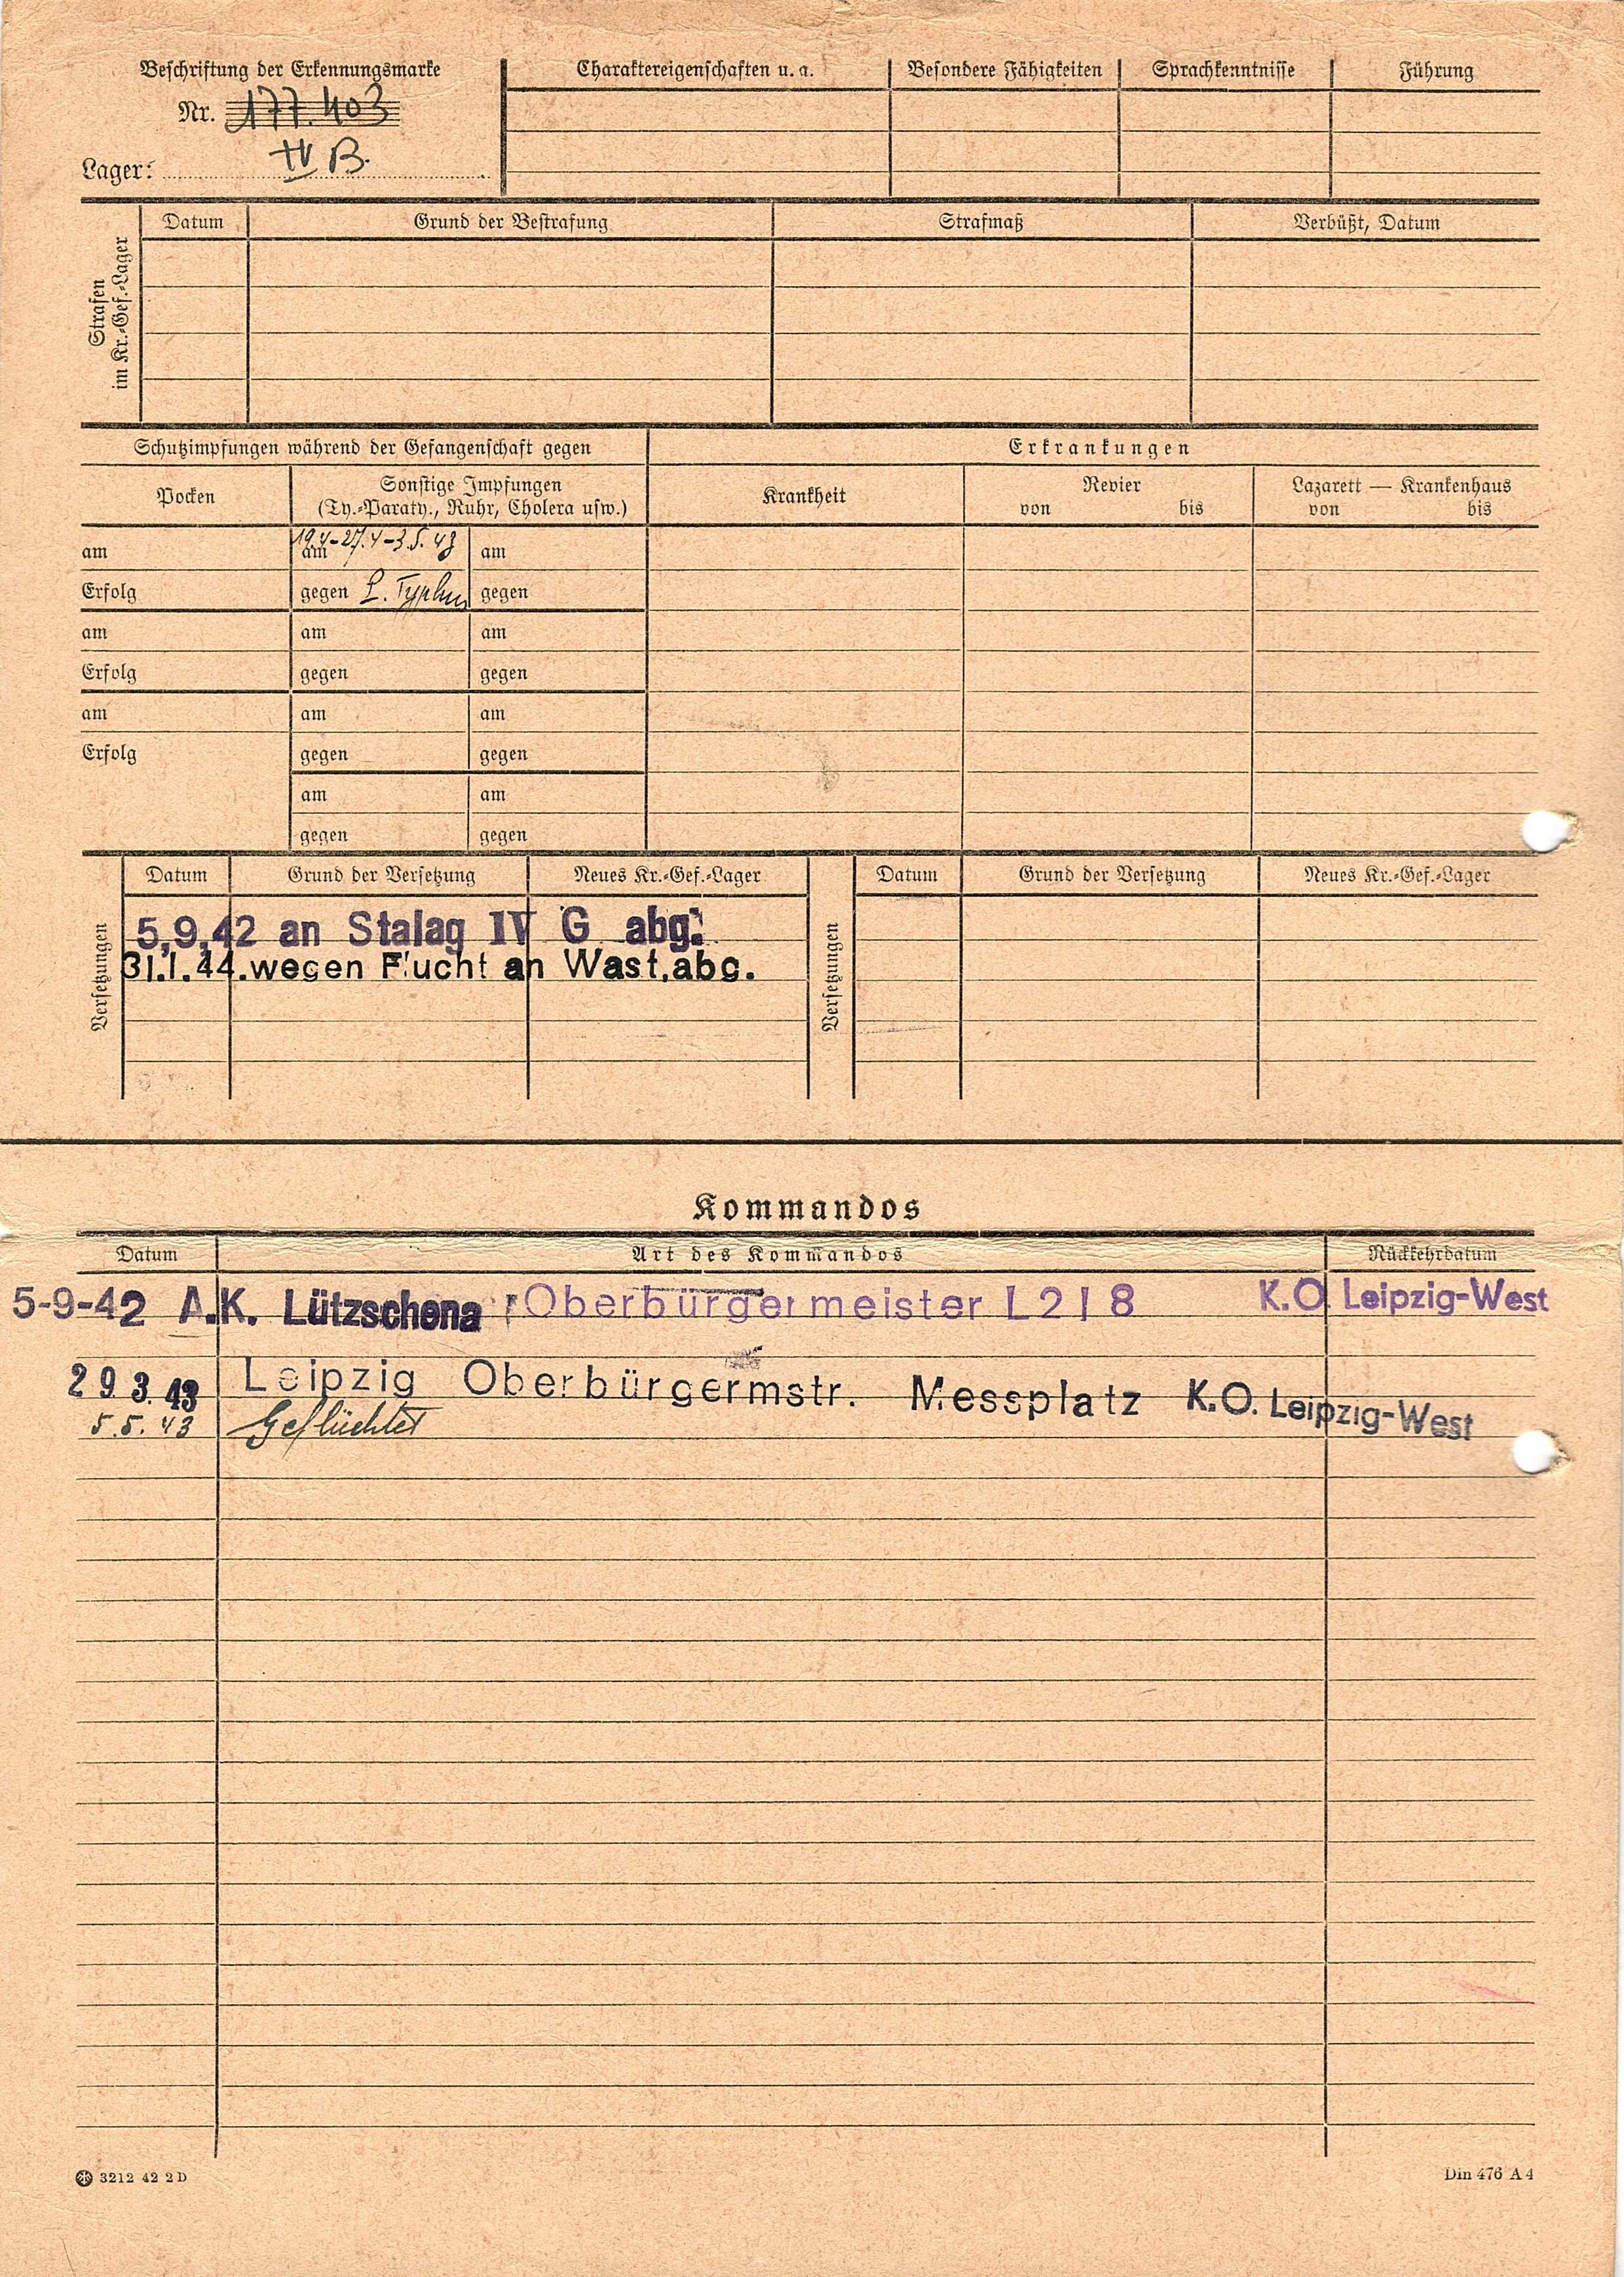 Beschriftung der Erkennungsmarke
Nr. 177.403
Lager: IV B.
Charaktereigenschaften u. a. Besondere Fähigkeiten Sprachkenntnisse Führung
Strafen
im Kr.-Gef.-Lager
Datum Grund der Bestrafung Strafmaß Verbüßt, Datum
Schutzimpfungen während der Gefangenschaft gegen Erkrankungen
Pocken Sonstige Impfungen
(Ty.-Paraty., Ruhr, Cholera usw.)
Krankheit Revier
von bis
Lazarett — Krankenhaus
von bis
am am 19.4-27.4-3.5.43 am
Erfolg gegen Typhus gegen
am am am
Erfolg gegen gegen
am am am
Erfolg gegen gegen
am am
gegen gegen
Versetzungen
Datum Grund der Versetzung Neues Kr.-Gef.-Lager
5,9,42 an Stalag IV G abg.
31.1.44.wegen Flucht an Wast.abg.
Versetzungen
Datum Grund der Versetzung Neues Kr.-Gef.-Lager
Kommandos
Datum Art des Kommandos Rückkehrdatum
5-9-42 A.K. Lützschena Oberbürgermeister L 218 K.O. Leipzig-West
29 3. 43 Leipzig Oberbürgermstr. Messplatz K.O. Leipzig-West
5.5.43 Geflüchtet
3212 42 2 D
Din 476 A 4